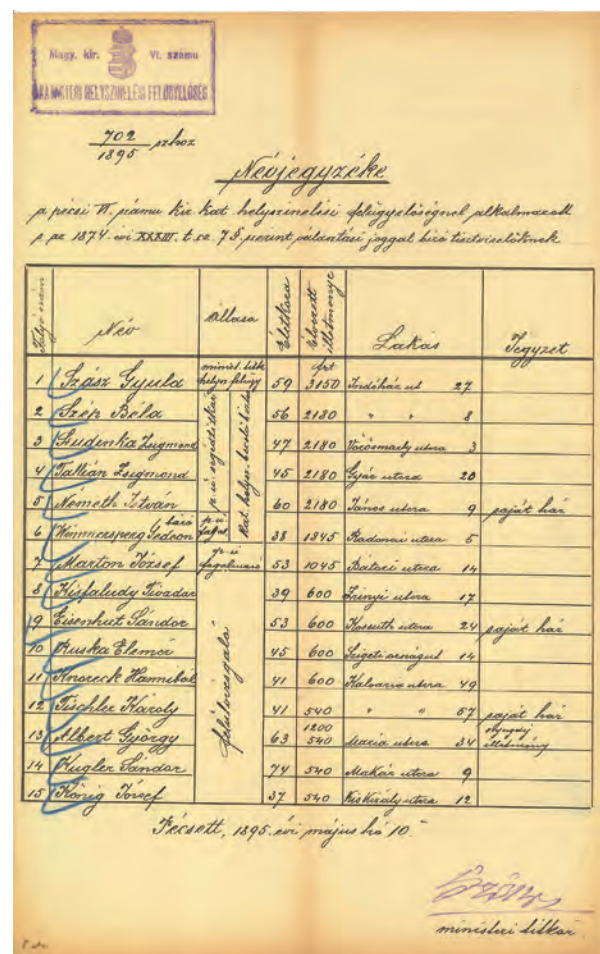 Magy. kir. VI. számu
KATASTERI HELYSZINELÉSI FELÜGYELŐSÉG
702
1895 szhoz
Névjegyzéke
a pécsi VI. számu kir. kat. helyszinelési felügyelőségnél alkalmazott
s az 1874. évi XXXIII. t. cz. 7 §. szerint választási joggal biró tisztviselőknek
Folyó szám Név Állása Életkora Élvezett illetménye Lakás Jegyzet
frt
1 Szász Gyula minist. titk. helysz. felügy. 59 3150 Indóház ut 27
2 Szép Béla 56 2180 " " 8
3 Studenka Zsigmond 47 2180 Vörösmarty utcza 3
4 Tallián Zsigmond 45 2180 Gyár utcza 20
5 Nemeth István 60 2180 János utcza 9 saját ház
6 báró Wimmersperg Gedeon 38 1345 Radonai utcza 5
7 Marton József p. ü. fogalmazó 53 1045 Bátori utcza 14
8 Kisfaludy Tivadar 39 600 Zrinyi utcza 17
9 Eisenhut Sándor 53 600 Kossuth utcza 24 saját ház
10 Ruska Elemér 45 600 Szigeti országut 14
11 Knoreck Hannibál 41 600 Kalvaria utcza 49
12 Tischler Károly 41 540 " " 57 saját ház
13 Albert György 63 1200 540 Maria utcza 34 nyugdij illetmény
14 Kugler Sándor 74 540 Makár utcza 9
15 König József 37 540 Kis Király utcza 12
Pécsett, 1895. évi május hó 10.
ministeri titkár.